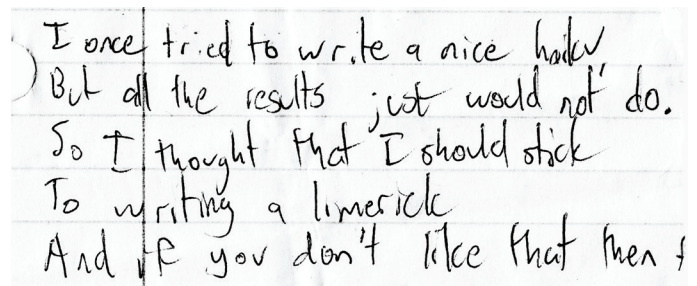 I once tried to write a nice haiku,
But all the results just would not do.
So I thought that I should stick
To writing a limerick
And if you don't like that then